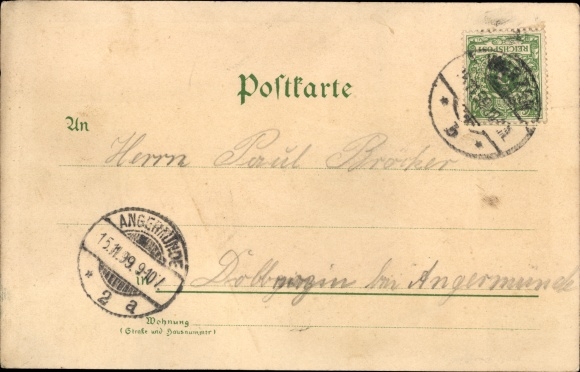 REICHSPOST
Postkarte
An
Herrn Paul Brocker
ANGERMÜNDE
15.11.99. 9-10V.
* 2 a
* b *
in
bei Angermünde
Wohnung
(Straße und Hausnummer)